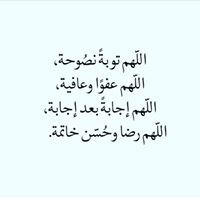 اللّهم توبةً نصُوحة،
اللّهم عفوًا وعافية،
اللّهم إجابةً بعد إجابة،
اللّهم رضا وحُسّن خاتمة.